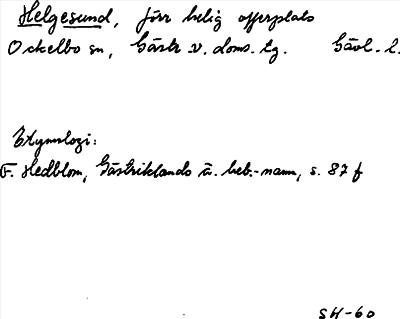 Helgesund, förr helig offerplats
Ockelbo sn, Gästr. v. doms. tg. Gävl. l.
Etymologi:
F. Hedblom, Gästriklands ä. beb.-namn, s. 87 f
SH-60